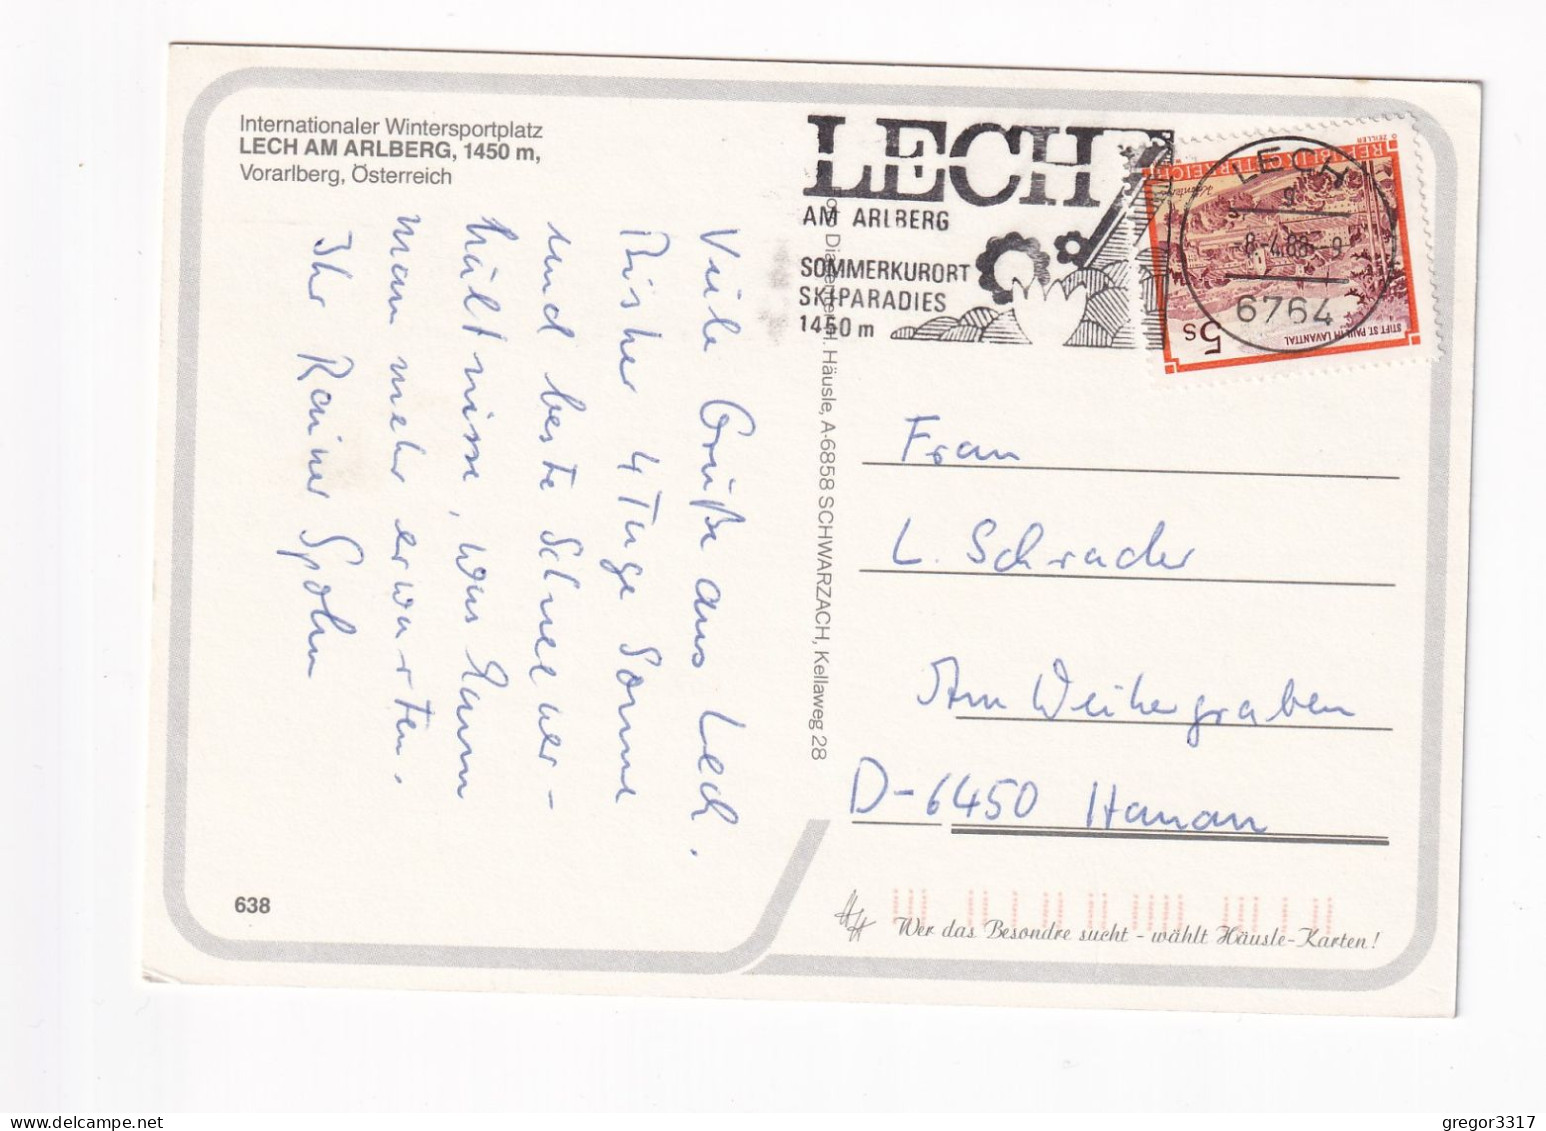 Internationaler Wintersportplatz
LECH AM ARLBERG, 1450 m,
Vorarlberg, Österreich
Viele Grüße aus Lech.
Bisher 4 Tage Sonne
und beste Schneever-
hältnisse, was kann
man mehr erwarten.
Ihr Rainer Spohn
638
H. Häusle, A-6858 SCHWARZACH, Kellaweg 28
LECH
AM ARLBERG
SOMMERKURORT
SKIPARADIES
1450 m
REPUBLIK ÖSTERREICH
O ZEILLER
Kärnten
STIFT ST. PAUL IM LAVANTTAL
5s
LECH
6764
Frau
L. Schrader
Am Weihergraben
D-6450 Hanau
HH
Wer das Besondre sucht - wählt Häusle-Karten!
gregor3317